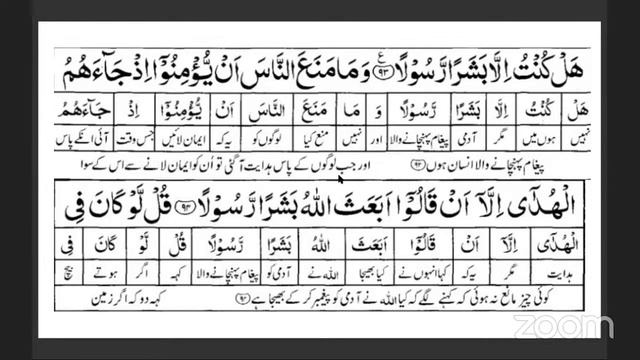 هَلْ كُنْتُ اِلَّا بَشَرًا رَّسُوْلًا ﴿۹۳﴾ ع وَ مَا مَنَعَ النَّاسَ اَنْ يُّؤْمِنُوْٓا اِذْ جَآءَهُمُ
هَلْ كُنْتُ اِلَّا بَشَرًا رَّسُوْلًا وَ مَا مَنَعَ النَّاسَ اَنْ يُّؤْمِنُوْٓا اِذْ جَآءَهُمُ
نہیں ہوں میں مگر آدمی پیغام پہنچانے والا اور نہیں منع کیا لوگوں کو یہ کہ ایمان لائیں جس وقت آئی انکے پاس
پیغام پہنچانے والا انسان ہوں ﴿۹۳﴾ اور جب لوگوں کے پاس ہدایت آگئی تو اُن کو ایمان لانے سے اس کے سوا
الْهُدٰٓى اِلَّآ اَنْ قَالُوْٓا اَبَعَثَ اللّٰهُ بَشَرًا رَّسُوْلًا ﴿۹۴﴾ قُلْ لَّوْ كَانَ فِى
الْهُدٰٓى اِلَّآ اَنْ قَالُوْٓا اَبَعَثَ اللّٰهُ بَشَرًا رَّسُوْلًا قُلْ لَّوْ كَانَ فِى
ہدایت مگر یہ کہ کہا انہوں نے کیا بھیجا اللہ نے آدمی کو پیغام پہنچانے والا کہہ اگر ہوتے بیچ
کوئی چیز مانع نہ ہوئی کہ کہنے لگے کہ کیا اللہ نے آدمی کو پیغمبر کر کے بھیجا ہے ﴿۹۴﴾ کہہ دو کہ اگر زمین
zoom